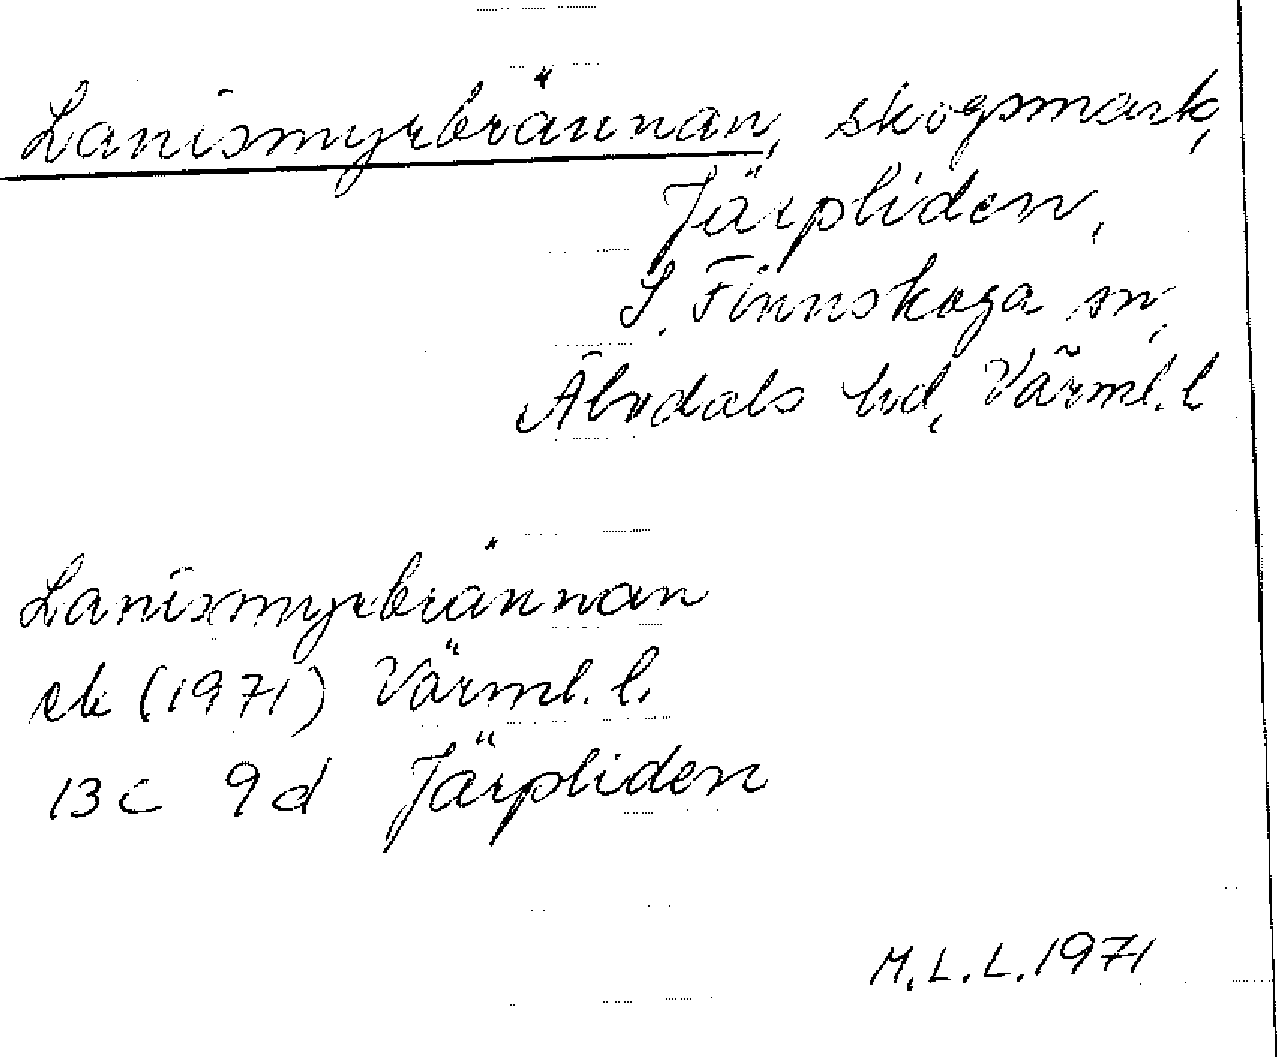 Lanismyrbrännan, skogsmark,
Järpliden,
S. Finnskoga sn,
Älvdals hd, Värml. l
Lanismyrbrännan
ek (1971) Värml. l.
13c 9d Järpliden
M.L.L. 1971